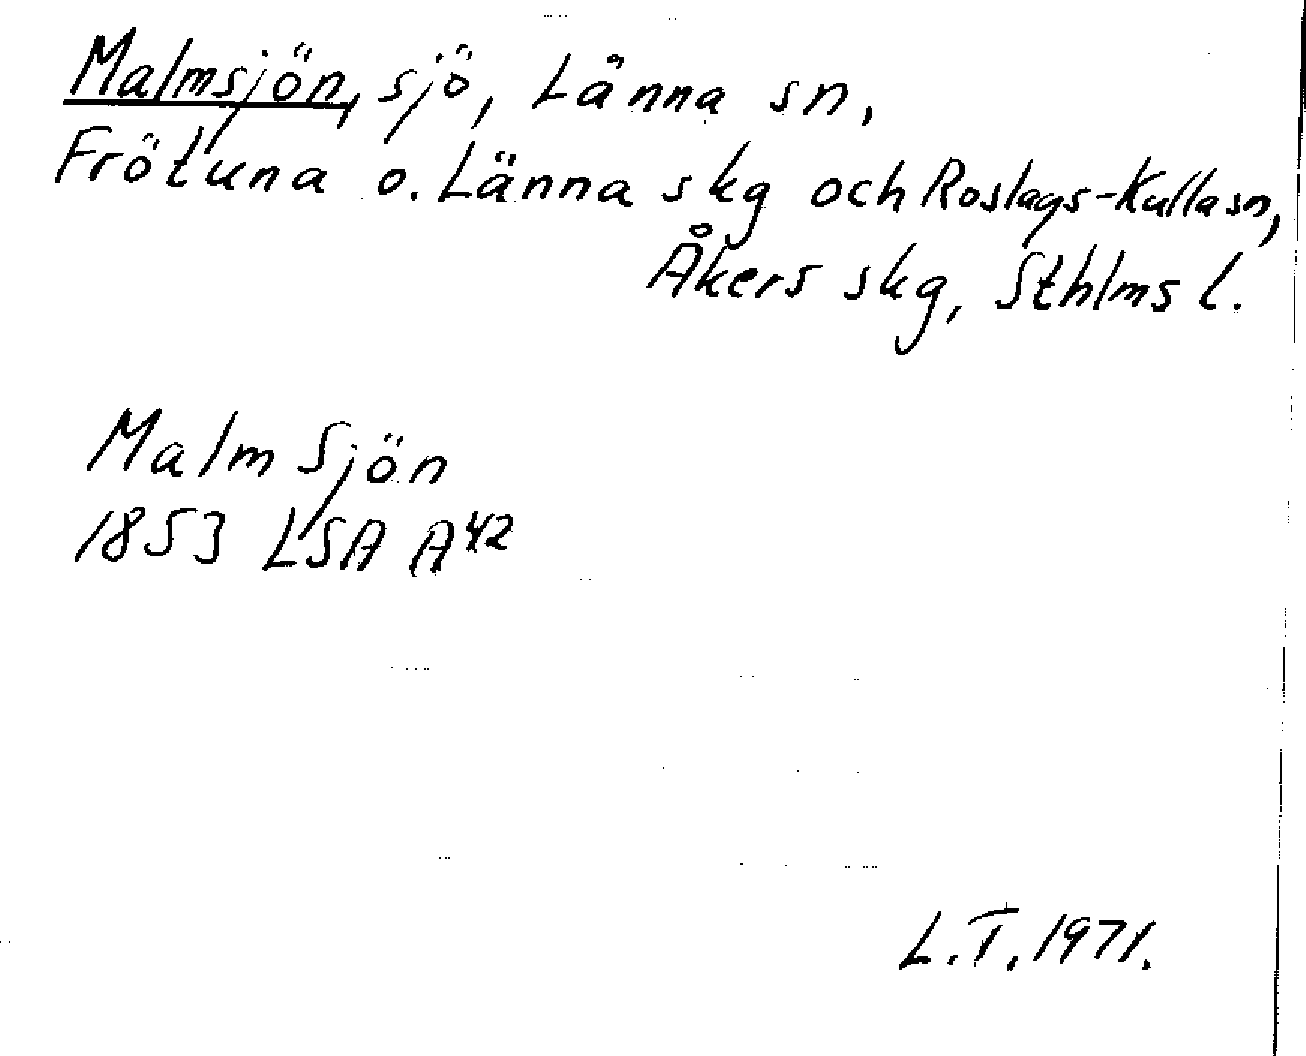 Malmsjön, sjö, Länna sn,
Frötuna o. Länna skg och Roslags-Kulla sn,
Åkers skg, Sthlms l.
Malm Sjön
1853 LSA A42
L.T. 1971.